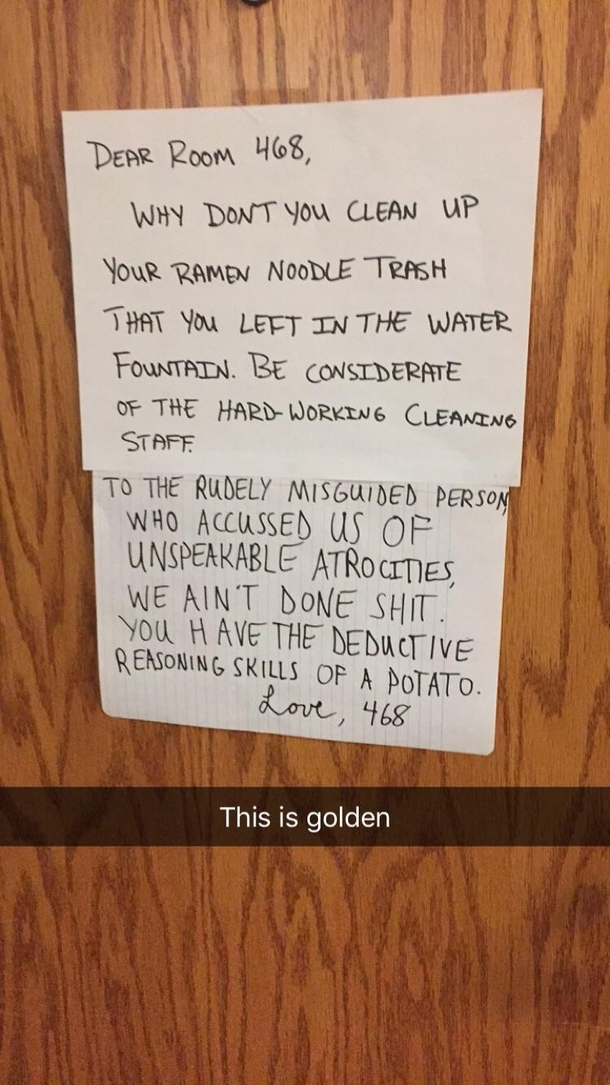 DEAR ROOM 468,
WHY DONT YOU CLEAN UP
YOUR RAMEN NOODLE TRASH
THAT YOU LEFT IN THE WATER
FOUNTAIN. BE CONSIDERATE
OF THE HARD-WORKING CLEANING
STAFF.
TO THE RUDELY MISGUIDED PERSON
WHO ACCUSSED US OF
UNSPEAKABLE ATROCITIES,
WE AIN'T DONE SHIT.
YOU HAVE THE DEDUCTIVE
REASONING SKILLS OF A POTATO.
Love, 468
This is golden